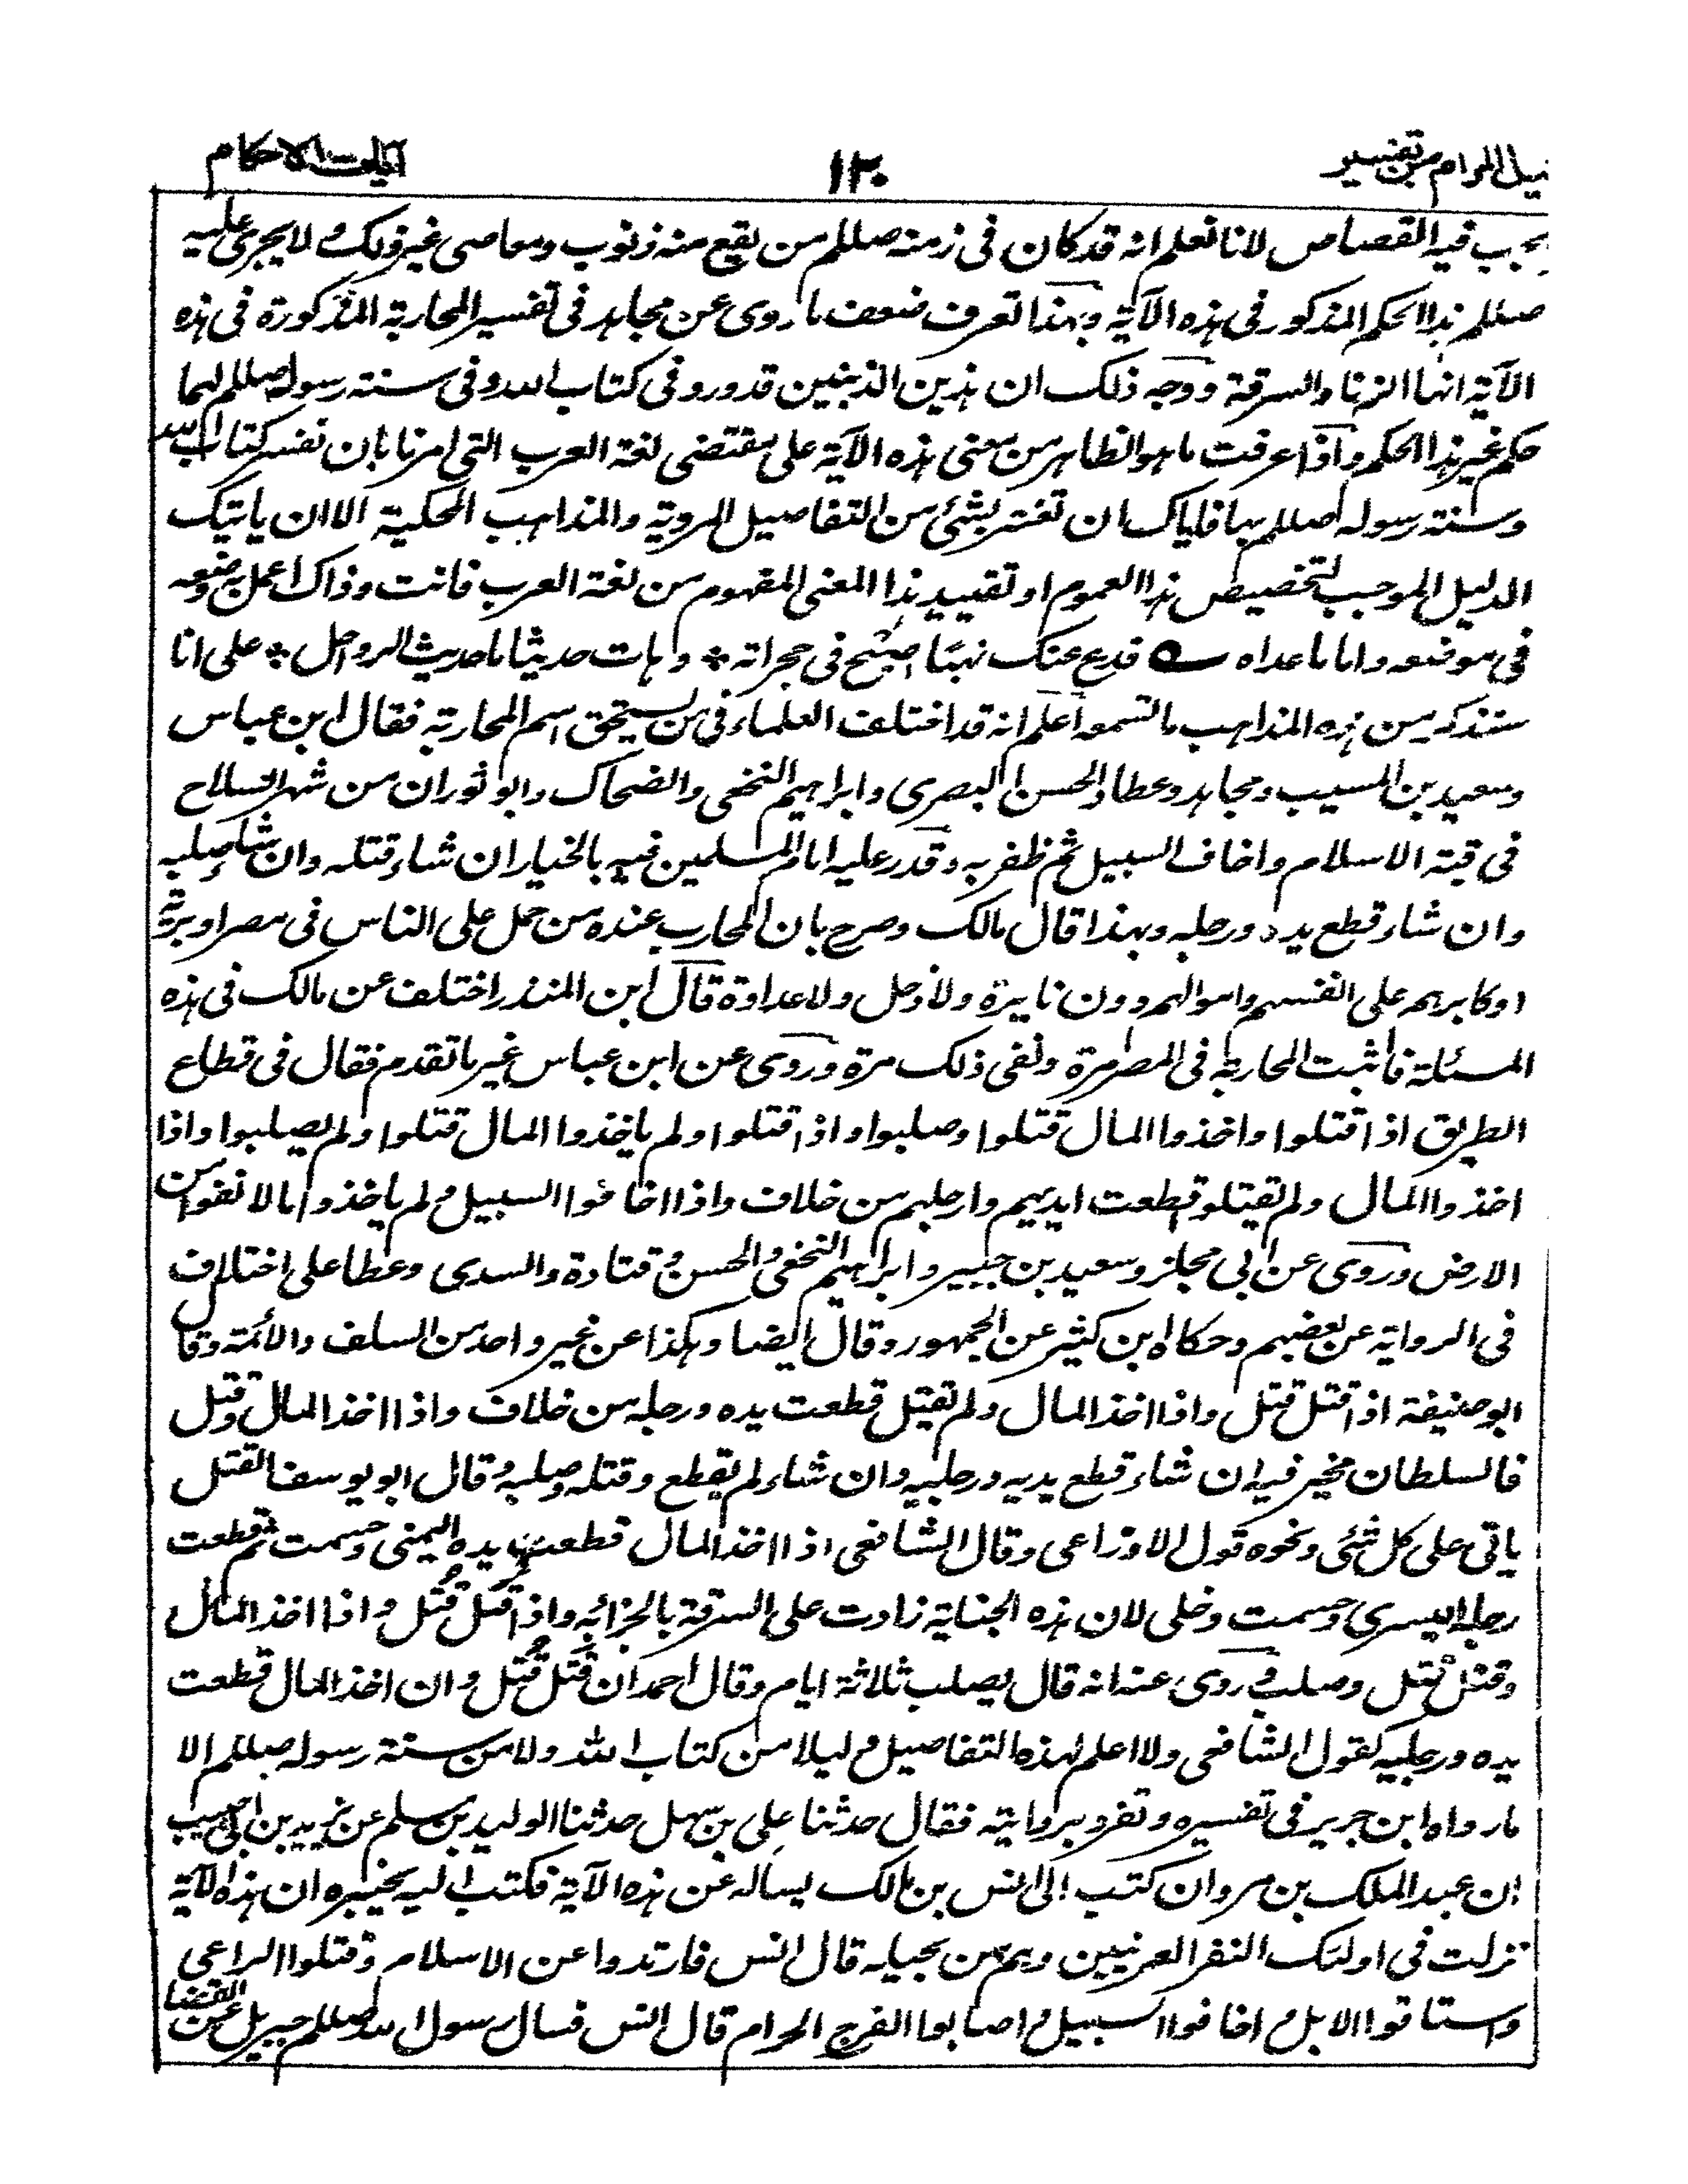 نيل المرام من تفسير ١٣٠ آيات الاحكام
يجب فيه القصاص لانا نعلم انه قد كان فى زمنه صللم من يقع منه ذنوب ومعاصى غير ذلك ولا يجرى عليه
صللم هذا الحكم المذكور فى هذه الآية وبهذا تعرف ضعف ما روى عن مجاهد فى تفسير المحاربة المذكورة فى هذه
الآية انها الزنا والسرقة ووجه ذلك ان هذين الذنبين قد ورد فى كتاب الله وفى سنة رسوله صللم لهما
حكم غير هذا الحكم واذا عرفت ما هو الظاهر من معنى هذه الآية على مقتضى لغة العرب التى امرنا بان نفسر كتاب الله
وسنة رسوله صللم بها فاياك ان تغتر بشئ من التفاصيل المروية والمذاهب المحكية الا ان ياتيك
الدليل الموجب لتخصيص هذا العموم او تقييد هذا المعنى المفهوم من لغة العرب فانت وذاك اعمل به وضعه
فى موضعه واما ما عداه فدع عنك نهبا صيح فى حجراته * وهات حديثا ما حديث الرواحل * على انا
سنذكر من هذه المذاهب ما تسمعه اعلم انه قد اختلف العلماء فى من يستحق اسم المحاربة فقال ابن عباس
وسعيد بن المسيب ومجاهد وعطا والحسن البصرى وابراهيم النخعى والضحاك وابو ثور ان من شهر السلاح
فى قبة الاسلام واخاف السبيل ثم ظفر به وقدر عليه امام المسلمين فيه بالخيار ان شاء قتله وان شاء صلبه
وان شاء قطع يده ورجله وبهذا قال مالك وصرح بان المحارب عنده من حمل على الناس فى مصر او برية
او كابرهم على انفسهم واموالهم دون نايرة ولا ذحل ولا عداوة قال ابن المنذر اختلف عن مالك فى هذه
المسئلة فاثبت المحاربة فى المصر مرة ونفى ذلك مرة وروى عن ابن عباس غير ما تقدم فقال فى قطاع
الطريق اذا قتلوا واخذوا المال قتلوا وصلبوا واذا قتلوا ولم ياخذوا المال قتلوا ولم يصلبوا واذا
اخذوا المال ولم يقتلوا قطعت ايديهم وارجلهم من خلاف واذا اخافوا السبيل ولم ياخذوا مالا نفوا من
الارض وروى عن ابى مجلز وسعيد بن جبير وابراهيم النخعى والحسن وقتادة والسدى وعطا على اختلاف
فى الرواية عن بعضهم وحكاه ابن كثير عن الجمهور وقال ايضا وهكذا عن غير واحد من السلف والأئمة وقال
ابو حنيفة اذا قتل قتل واذا اخذ المال ولم يقتل قطعت يده ورجله من خلاف واذا اخذ المال وقتل
فالسلطان مخير فيه ان شاء قطع يديه ورجليه وان شاء لم يقطع وقتله وصلبه وقال ابو يوسف القتل
ياتى على كل شئى ونحوه قول الاوزاعى وقال الشافعى اذا اخذ المال قطعت يده اليمنى وحسمت ثم قطعت
رجله اليسرى وحسمت وخلى لان هذه الجناية زادت على السرقة بالحرابة واذا قَتل قُتل واذا اخذ المال
وقتل قُتل وصلب وروى عنه انه قال يصلب ثلاثة ايام وقال احمد ان قَتَل قُتِل وان اخذ المال قطعت
يده ورجليه كقول الشافعى ولا اعلم لهذه التفاصيل دليلا من كتاب الله ولا من سنة رسوله صللم الا
ما رواه ابن جرير فى تفسيره وتفرد بروايته فقال حدثنا على بن سهل حدثنا الوليد بن مسلم عن يزيد بن ابى حبيب
ان عبد الملك بن مروان كتب الى انس بن مالك يسأله عن هذه الآية فكتب اليه يخبره ان هذه الآية
نزلت فى اولئك النفر العرنيين وهم من بجيله قال انس فارتدوا عن الاسلام وقتلوا الراعى
واستاقوا الابل واخافوا السبيل واصابوا الفرج الحرام قال انس فسال رسول الله صللم جبريل عن القضا